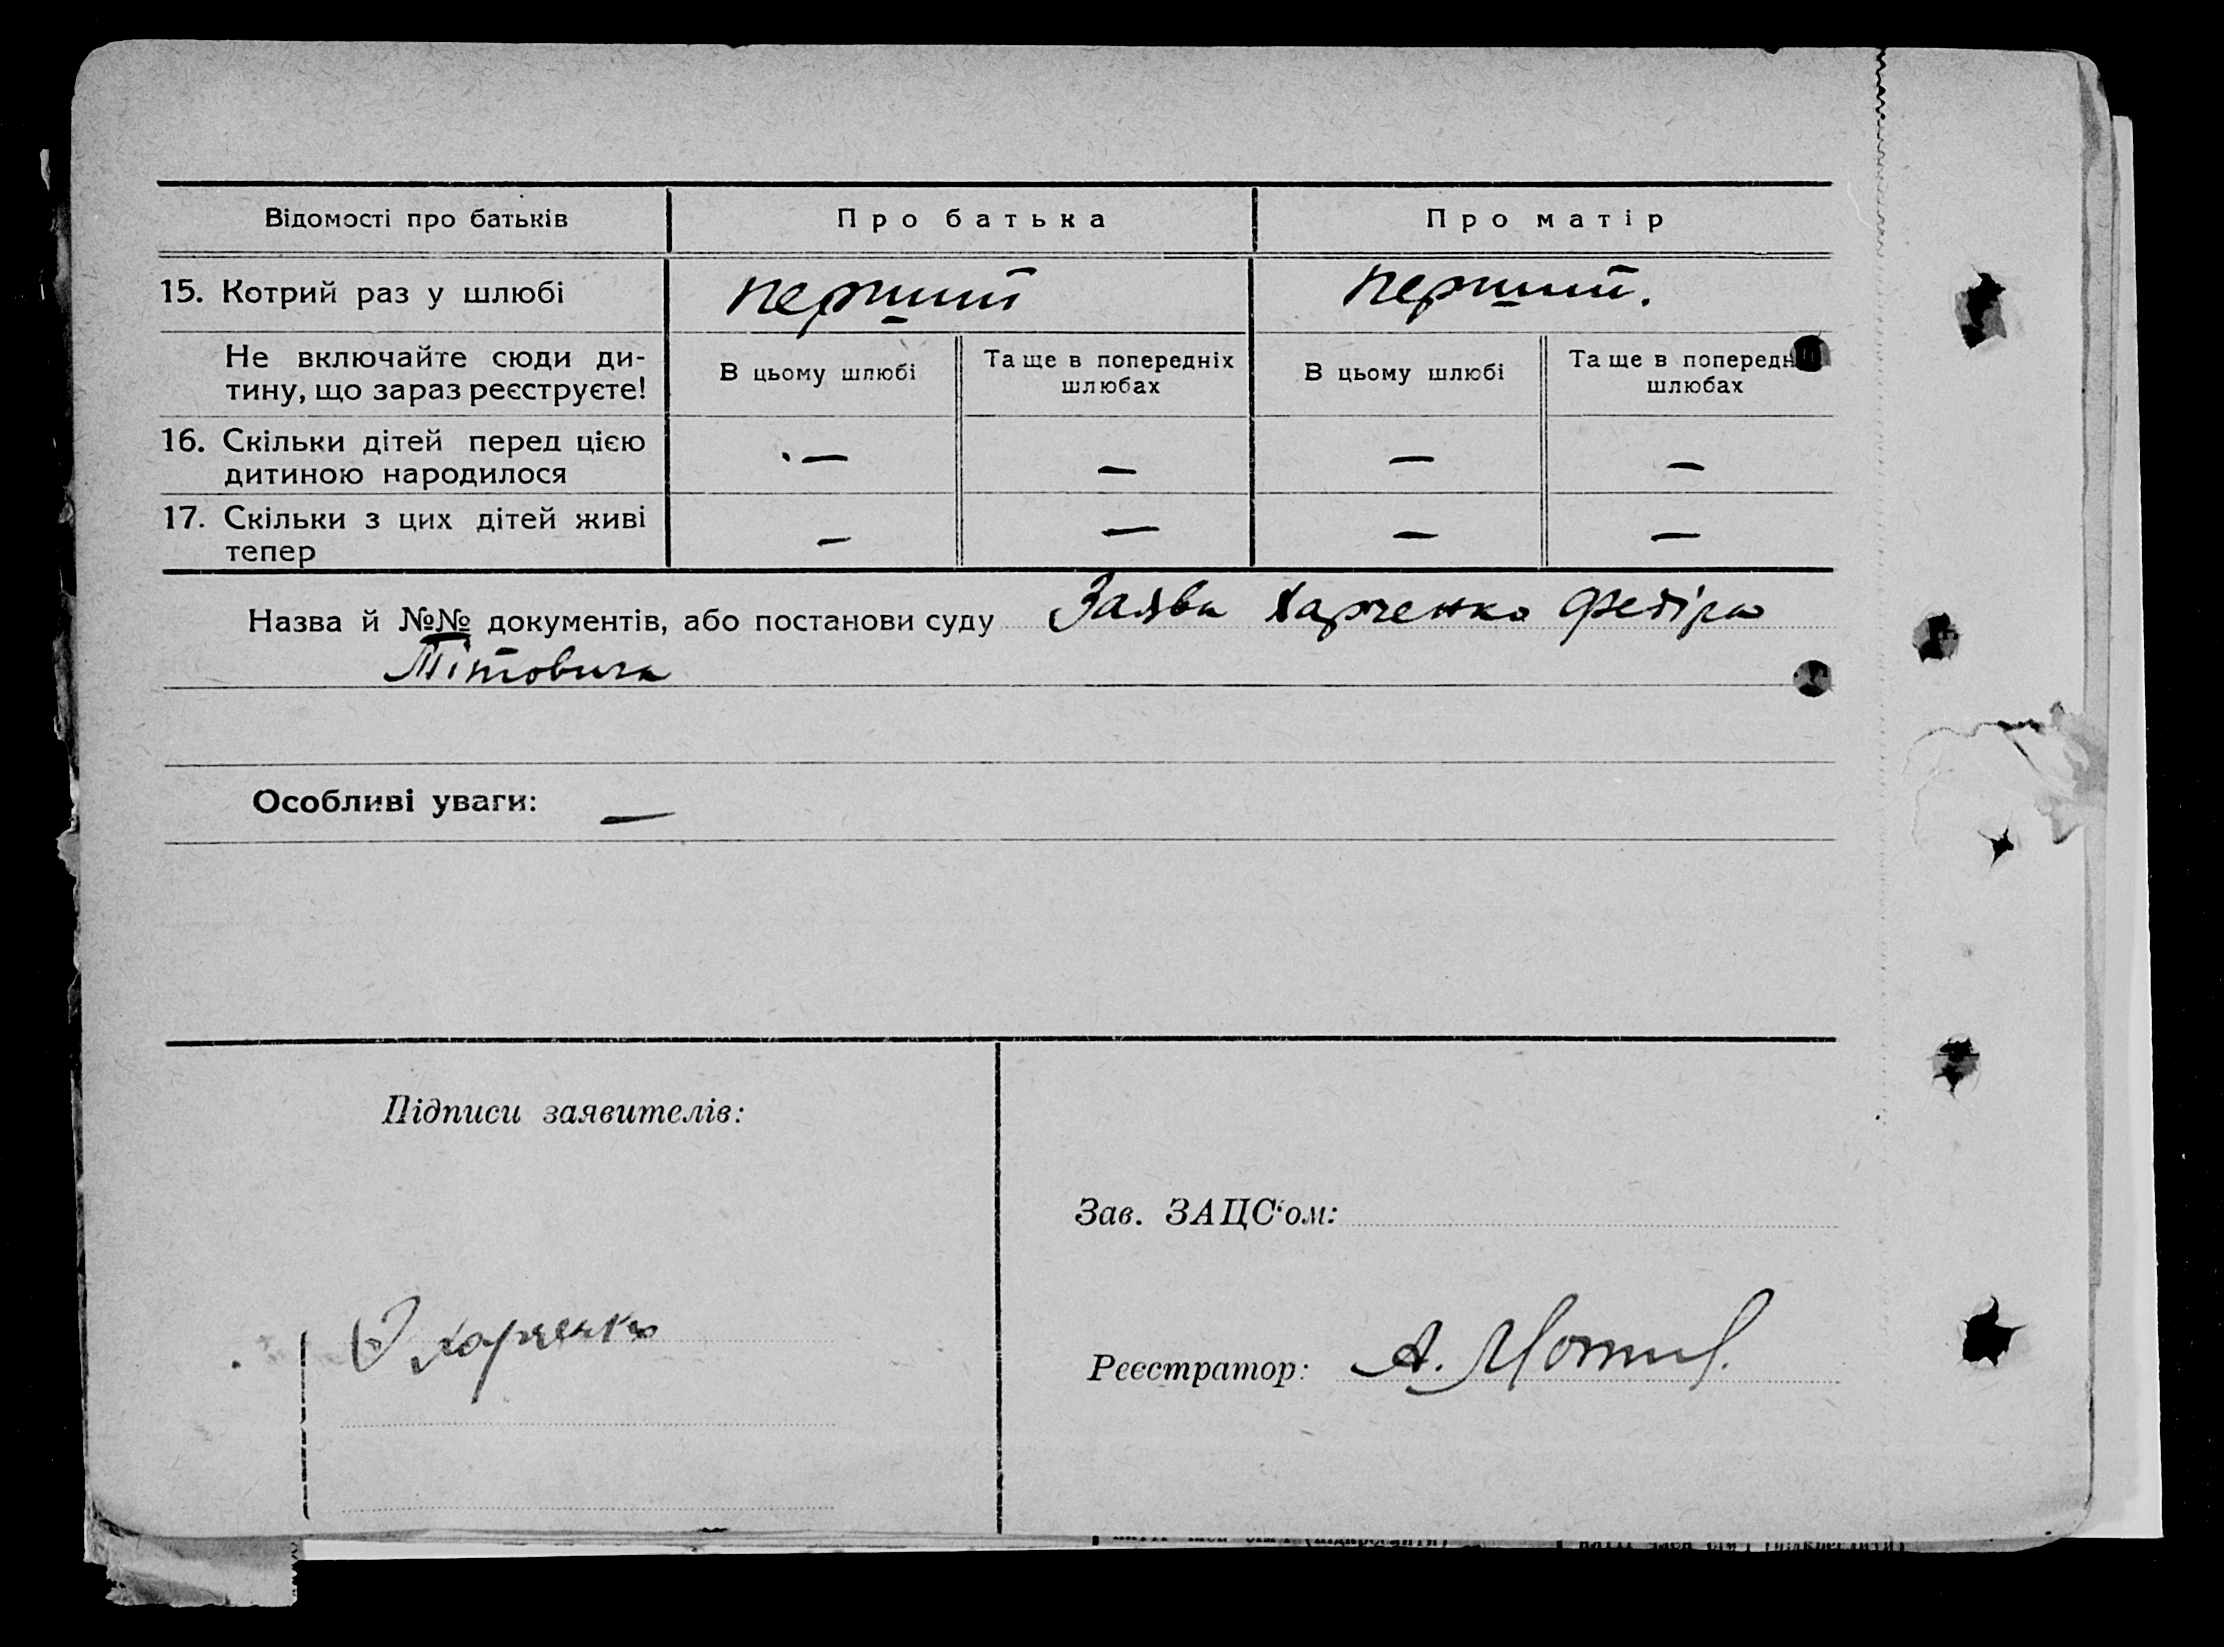 Відомості про батьків Про батька Про матір
15. Котрий раз у шлюбі перший перший.
Не включайте сюди ди-
тину, що зараз реєструєте!
В цьому шлюбі
Та ще в попередніх
шлюбах
В цьому шлюбі
Та ще в попередн
шлюбах
16. Скільки дітей перед цією
дитиною народилося — — — —
17. Скільки з цих дітей живі
тепер — — — —
Назва й №№ документів, або постанови суду Заява Харченко Федіра
Тітовича
Особливі уваги: —
Підписи заявителів:
Зав. ЗАЦС'ом:
Харченко
Реєстратор: А.